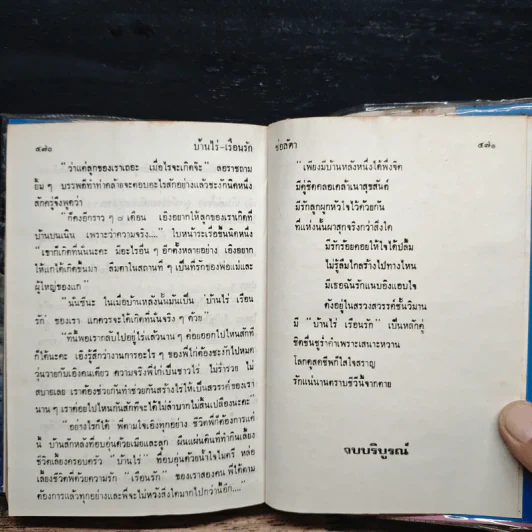 ๔๗๐
บ้านไร่-เรือนรัก
"ว่าแต่ลูกของเราเถอะ เมื่อไรจะเกิดจ๊ะ" ลอราชถาม
ยิ้ม ๆ บรรพตทำท่าคล้ายจะตอบอะไรสักอย่างแล้วชะงักนิดหนึ่ง
สักครู่จึงพูดว่า
"ก็คงอีกราว ๆ ๘ เดือน เอิงอยากให้ลูกของเราเกิดที่
บ้านบนเนิน เพราะว่าความจริง...." ใบหน้าระเรื่อขึ้นนิดหนึ่ง
"เขาก็เกิดที่นั่นนะคะ มีอะไรอื่น ๆ อีกตั้งหลายอย่าง เอิงอยาก
ให้แกได้เกิดขึ้นมา ลืมตาในสถานที่ ๆ เป็นที่รักของพ่อแม่และ
ผู้ใหญ่ของแก"
"นั่นซีนะ ในเมื่อบ้านหลังนั้นมันเป็น 'บ้านไร่ เรือน
รัก' ของเรา แกควรจะได้เกิดที่นั่นจริง ๆ ด้วย"
"ทีนี้พอเรากลับไปอยู่ไร่แล้วนาน ๆ ค่อยออกไปไหนสักที
ก็ได้นะคะ เอิงรู้สึกว่างานการอะไร ๆ ของพี่ไก่ต้องชะงักไปหมด
วุ่นวายกับเอิงคนเดียว ความจริงพี่ไก่เป็นชาวไร่ ไม่ร่ำรวย ไม่
สบายเลย เราต้องช่วยกันทำช่วยกันสร้างไร่ให้เป็นสวรรค์ของเรา
นาน ๆ เราค่อยไปไหนกันสักทีจะได้ไม่ลำบากไม่สิ้นเปลืองนะคะ"
"อย่างไรก็ได้ พี่ตามใจเอิงทุกอย่าง ชีวิตพี่ก็ต้องการแค่
นี้ บ้านสักหลังที่อบอุ่นด้วยเมียและลูก ผืนแผ่นดินที่ทำกินเลี้ยง
ชีวิตเลี้ยงครอบครัว 'บ้านไร่' ที่อบอุ่นด้วยน้ำใจไมตรี หล่อ
เลี้ยงชีวิตพี่ด้วยความรัก 'เรือนรัก' ของเราสองคน พี่ได้ตาม
ต้องการแล้วทุกอย่างและพี่จะไม่หวังสิ่งใดมากไปกว่านี้อีก...."
ช่อลัดา
๔๗๑
"เพียงมีบ้านหลังหนึ่งได้พึ่งพิง
มีคู่ชิดคลอเคล้าเนาสุขสันติ์
มีรักลูกผูกหัวใจไว้ด้วยกัน
ที่แห่งนั้นผาสุกจริงกว่าสิ่งใด
มีรักร้อยคอยให้ใจได้ปลื้ม
ไม่รู้ลืมไกลร้างไปทางไหน
มีเธอฉันรักแนบอิงแอบใจ
ดังอยู่ในสรวงสวรรค์ชั้นวิมาน
มี "บ้านไร่ เรือนรัก" เป็นหลักคู่
ชิดชื่นชูร่ำค่ำเพราะเสนาะหวาน
โลกสุดชีพก็ใสใจสราญ
รักแน่นานตราบชีวีนี้จากตาย
จบบริบูรณ์